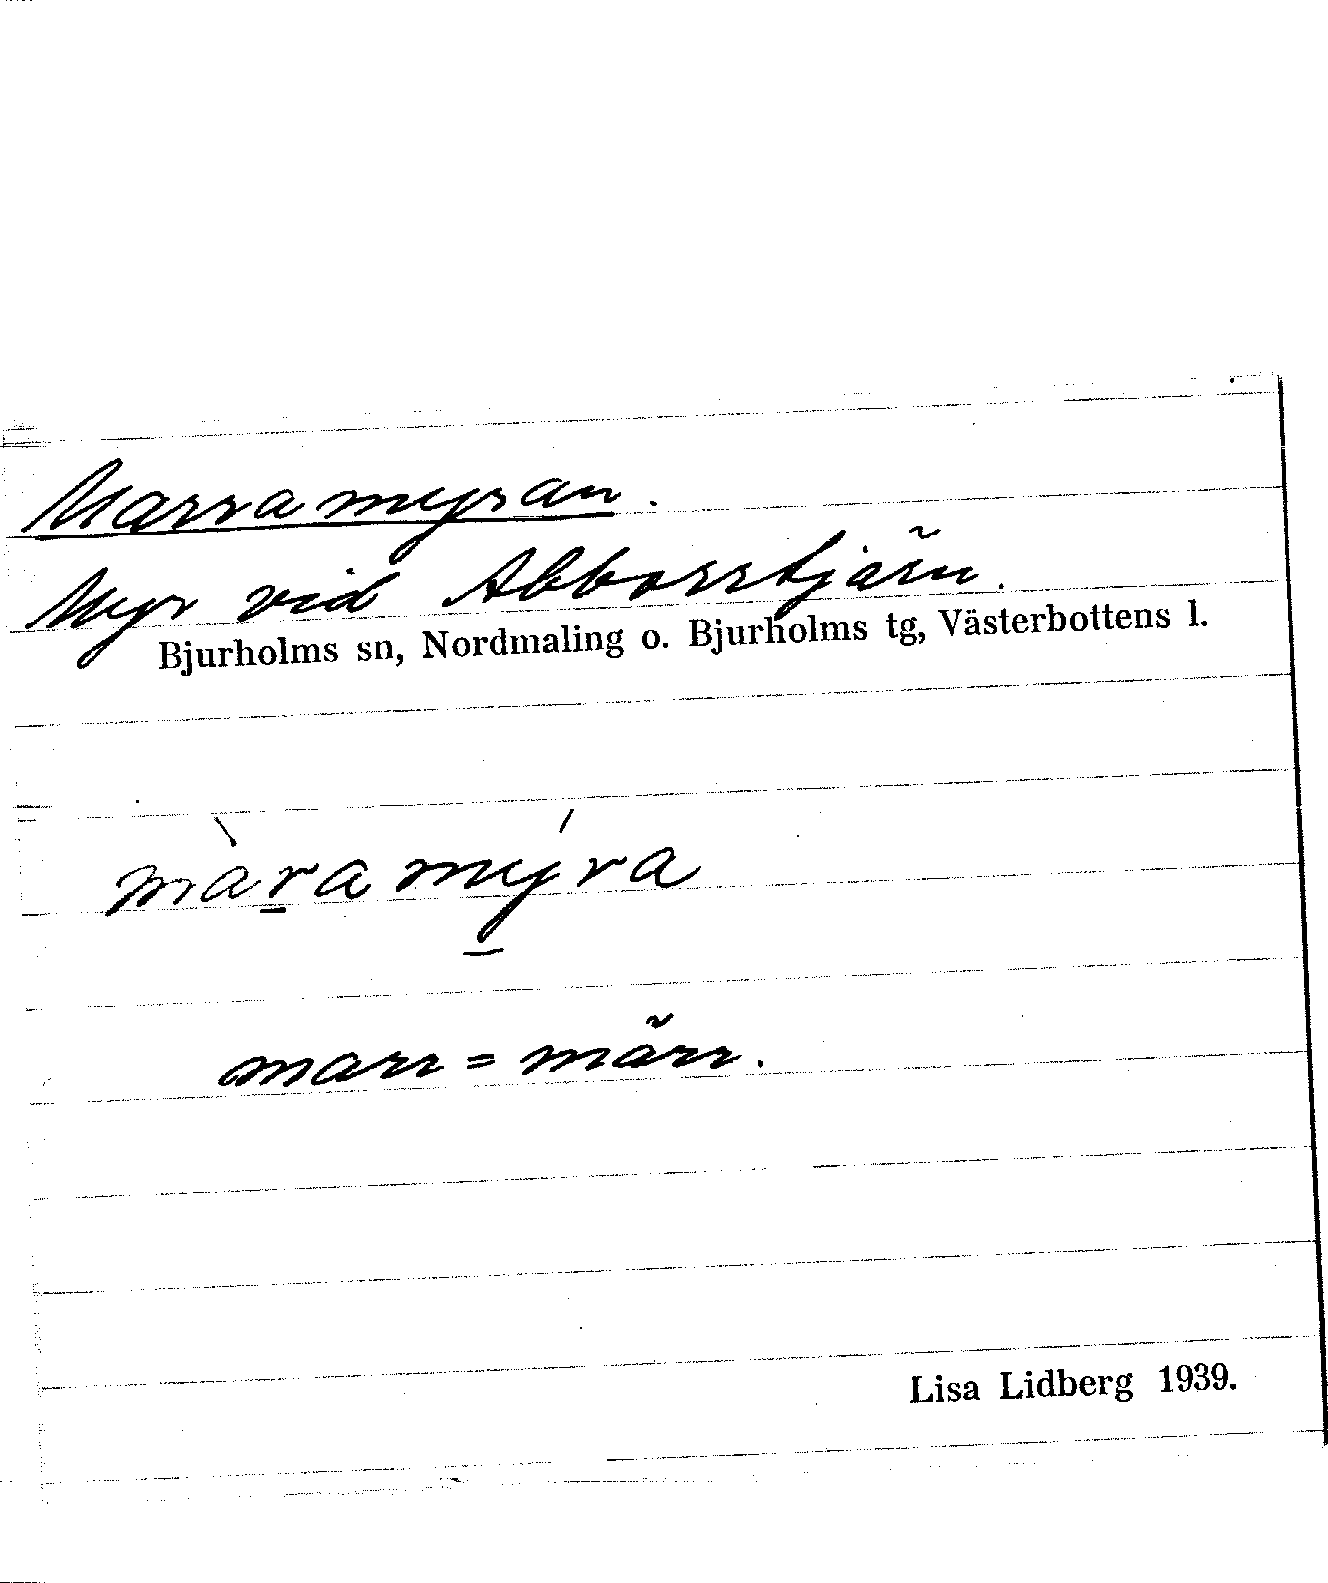 Marramyran.
Myr vid Abborrtjärn.
Bjurholms sn, Nordmaling o. Bjurholms tg, Västerbottens l.
màr̲amý̲ra
marr = märr.
Lisa Lidberg 1939.